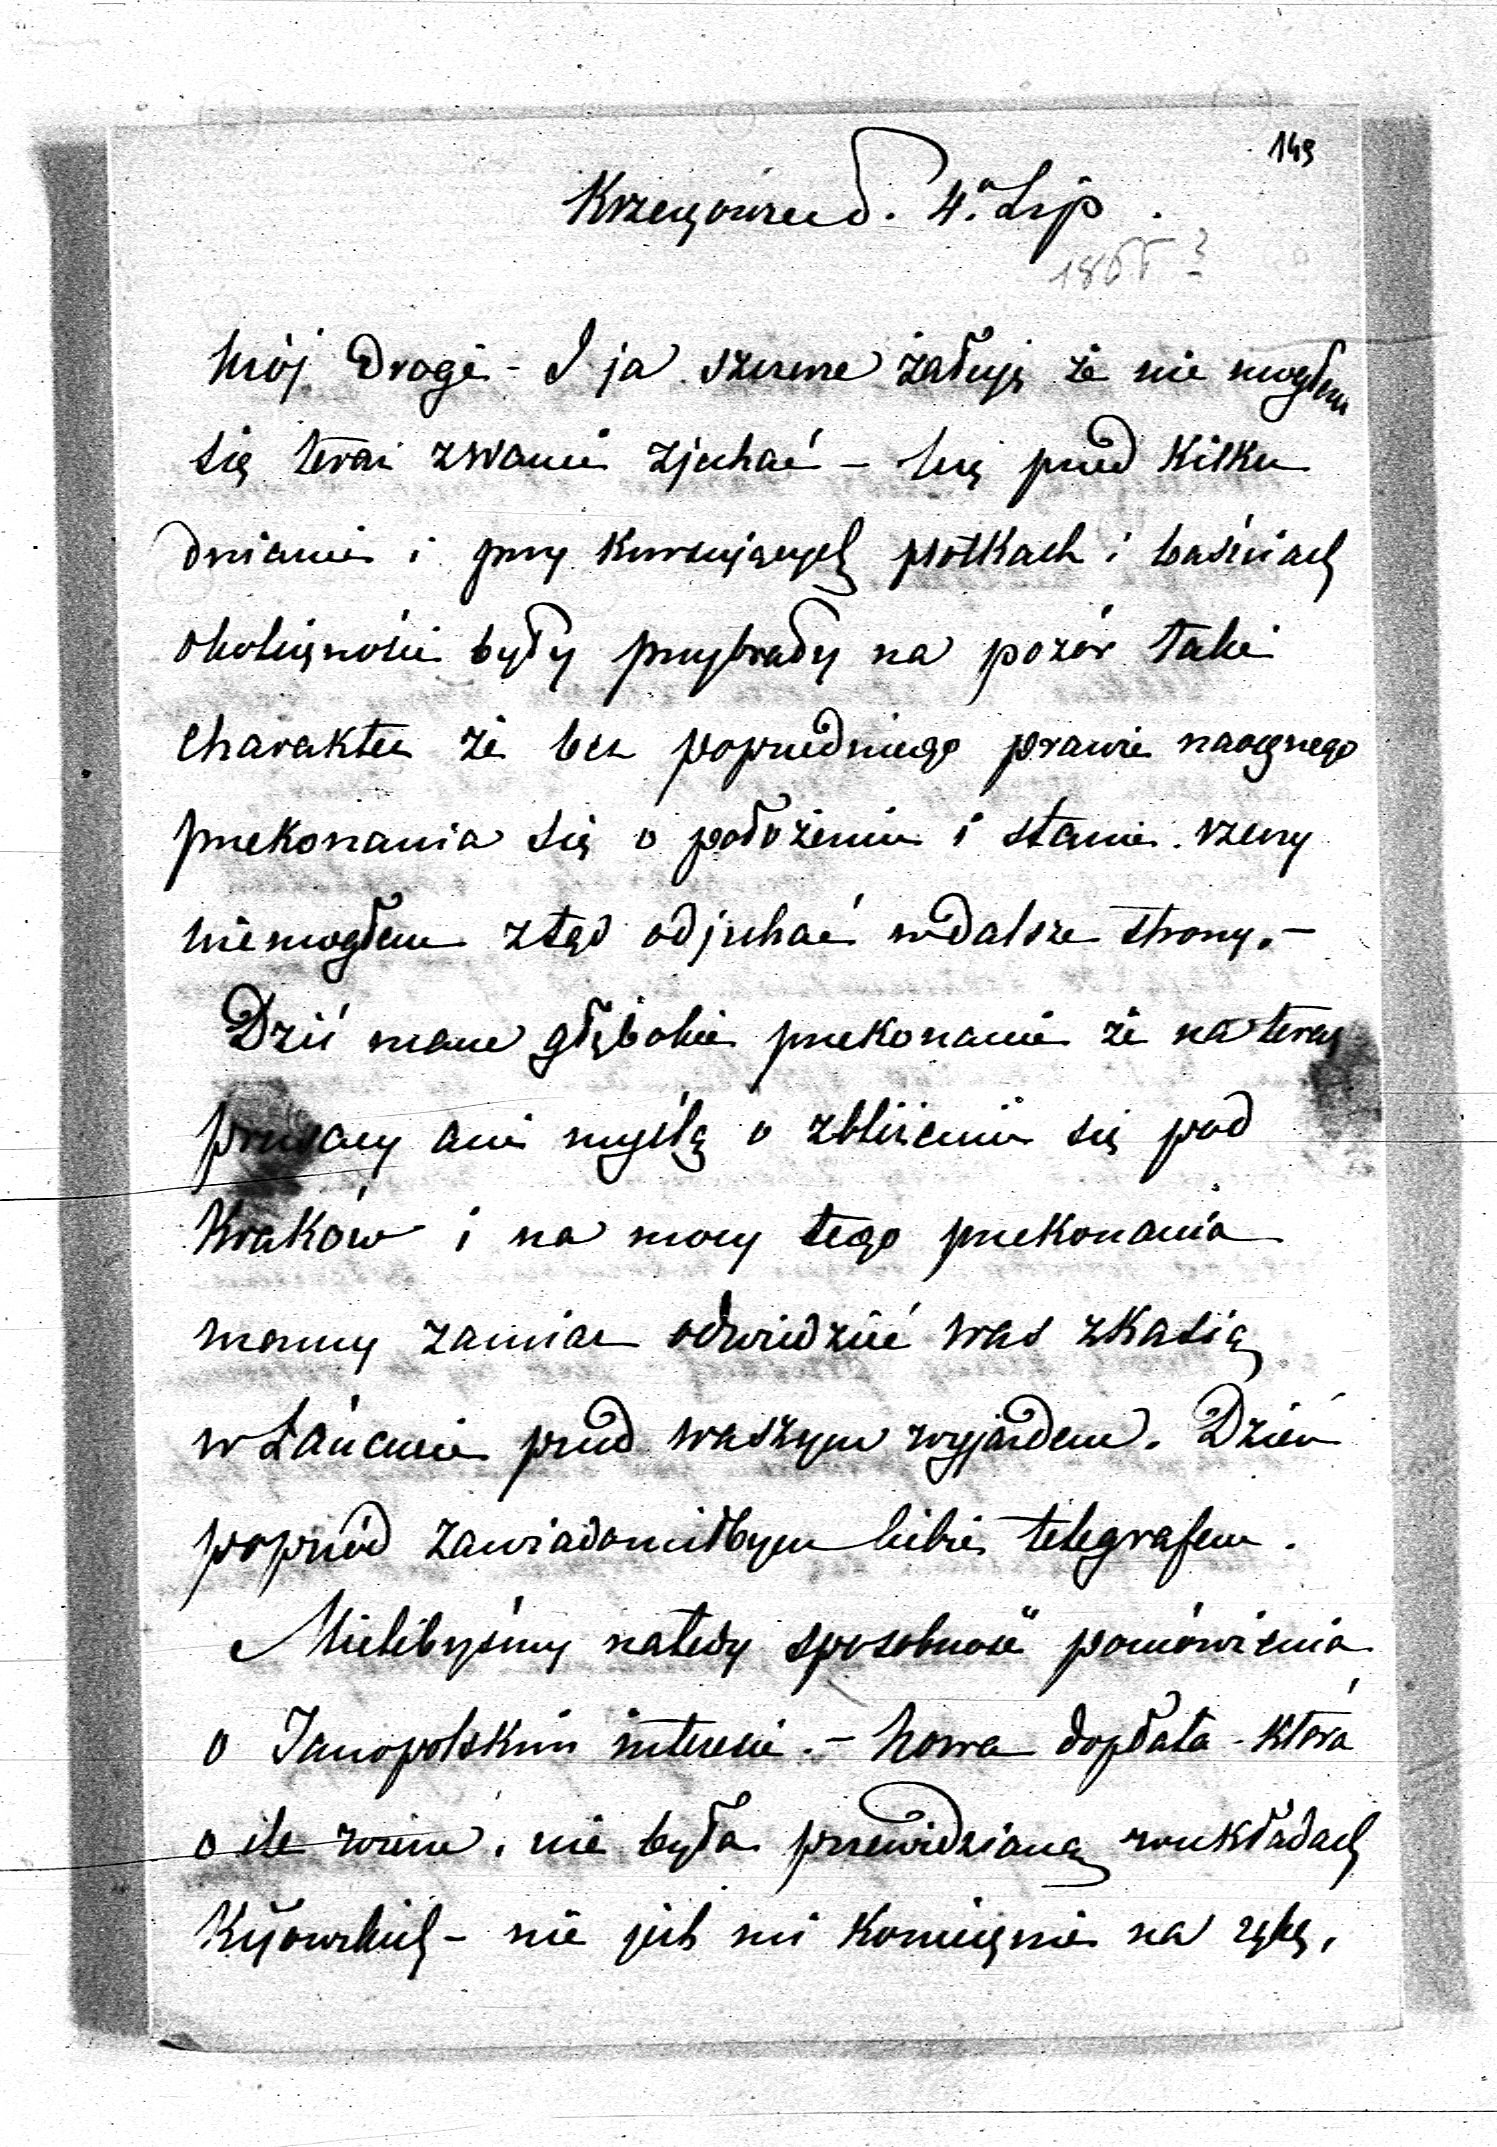 149
Krzeszowice d. 4. Lip.
186 ?
Mój Drogi - I ja szczerze żałuję że nie mogłem
się teraz zwami zjechać - lecz przed kilku
dniami i przy kursujących plotkach i baśniach
okoliczności były przybrały na pozór taki
charakter że bez poprzedniego prawie naocznego
przekonania się o położeniu i stanie rzeczy
niemogłem ztąd odjechać wdalsze strony. -
Dziś mam głębokie przekonanie że na teraz
prusacy ani myślą o zbliżeniu się pod
Kraków i na mocy tego przekonania
mamy zamiar odwiedzić was zKasią
w Łańcucie przed waszym wyjazdem. Dzień
poprzód zawiadomiłbym ciebie telegrafem.
Mielibyśmy natedy sposobność pomówienia
o Janopolskim interesie. - Nowa dopłata - która
o ile wiem, nie była przewidzianą wukładach
Kijowskich - nie jest mi koniecznie na rękę,